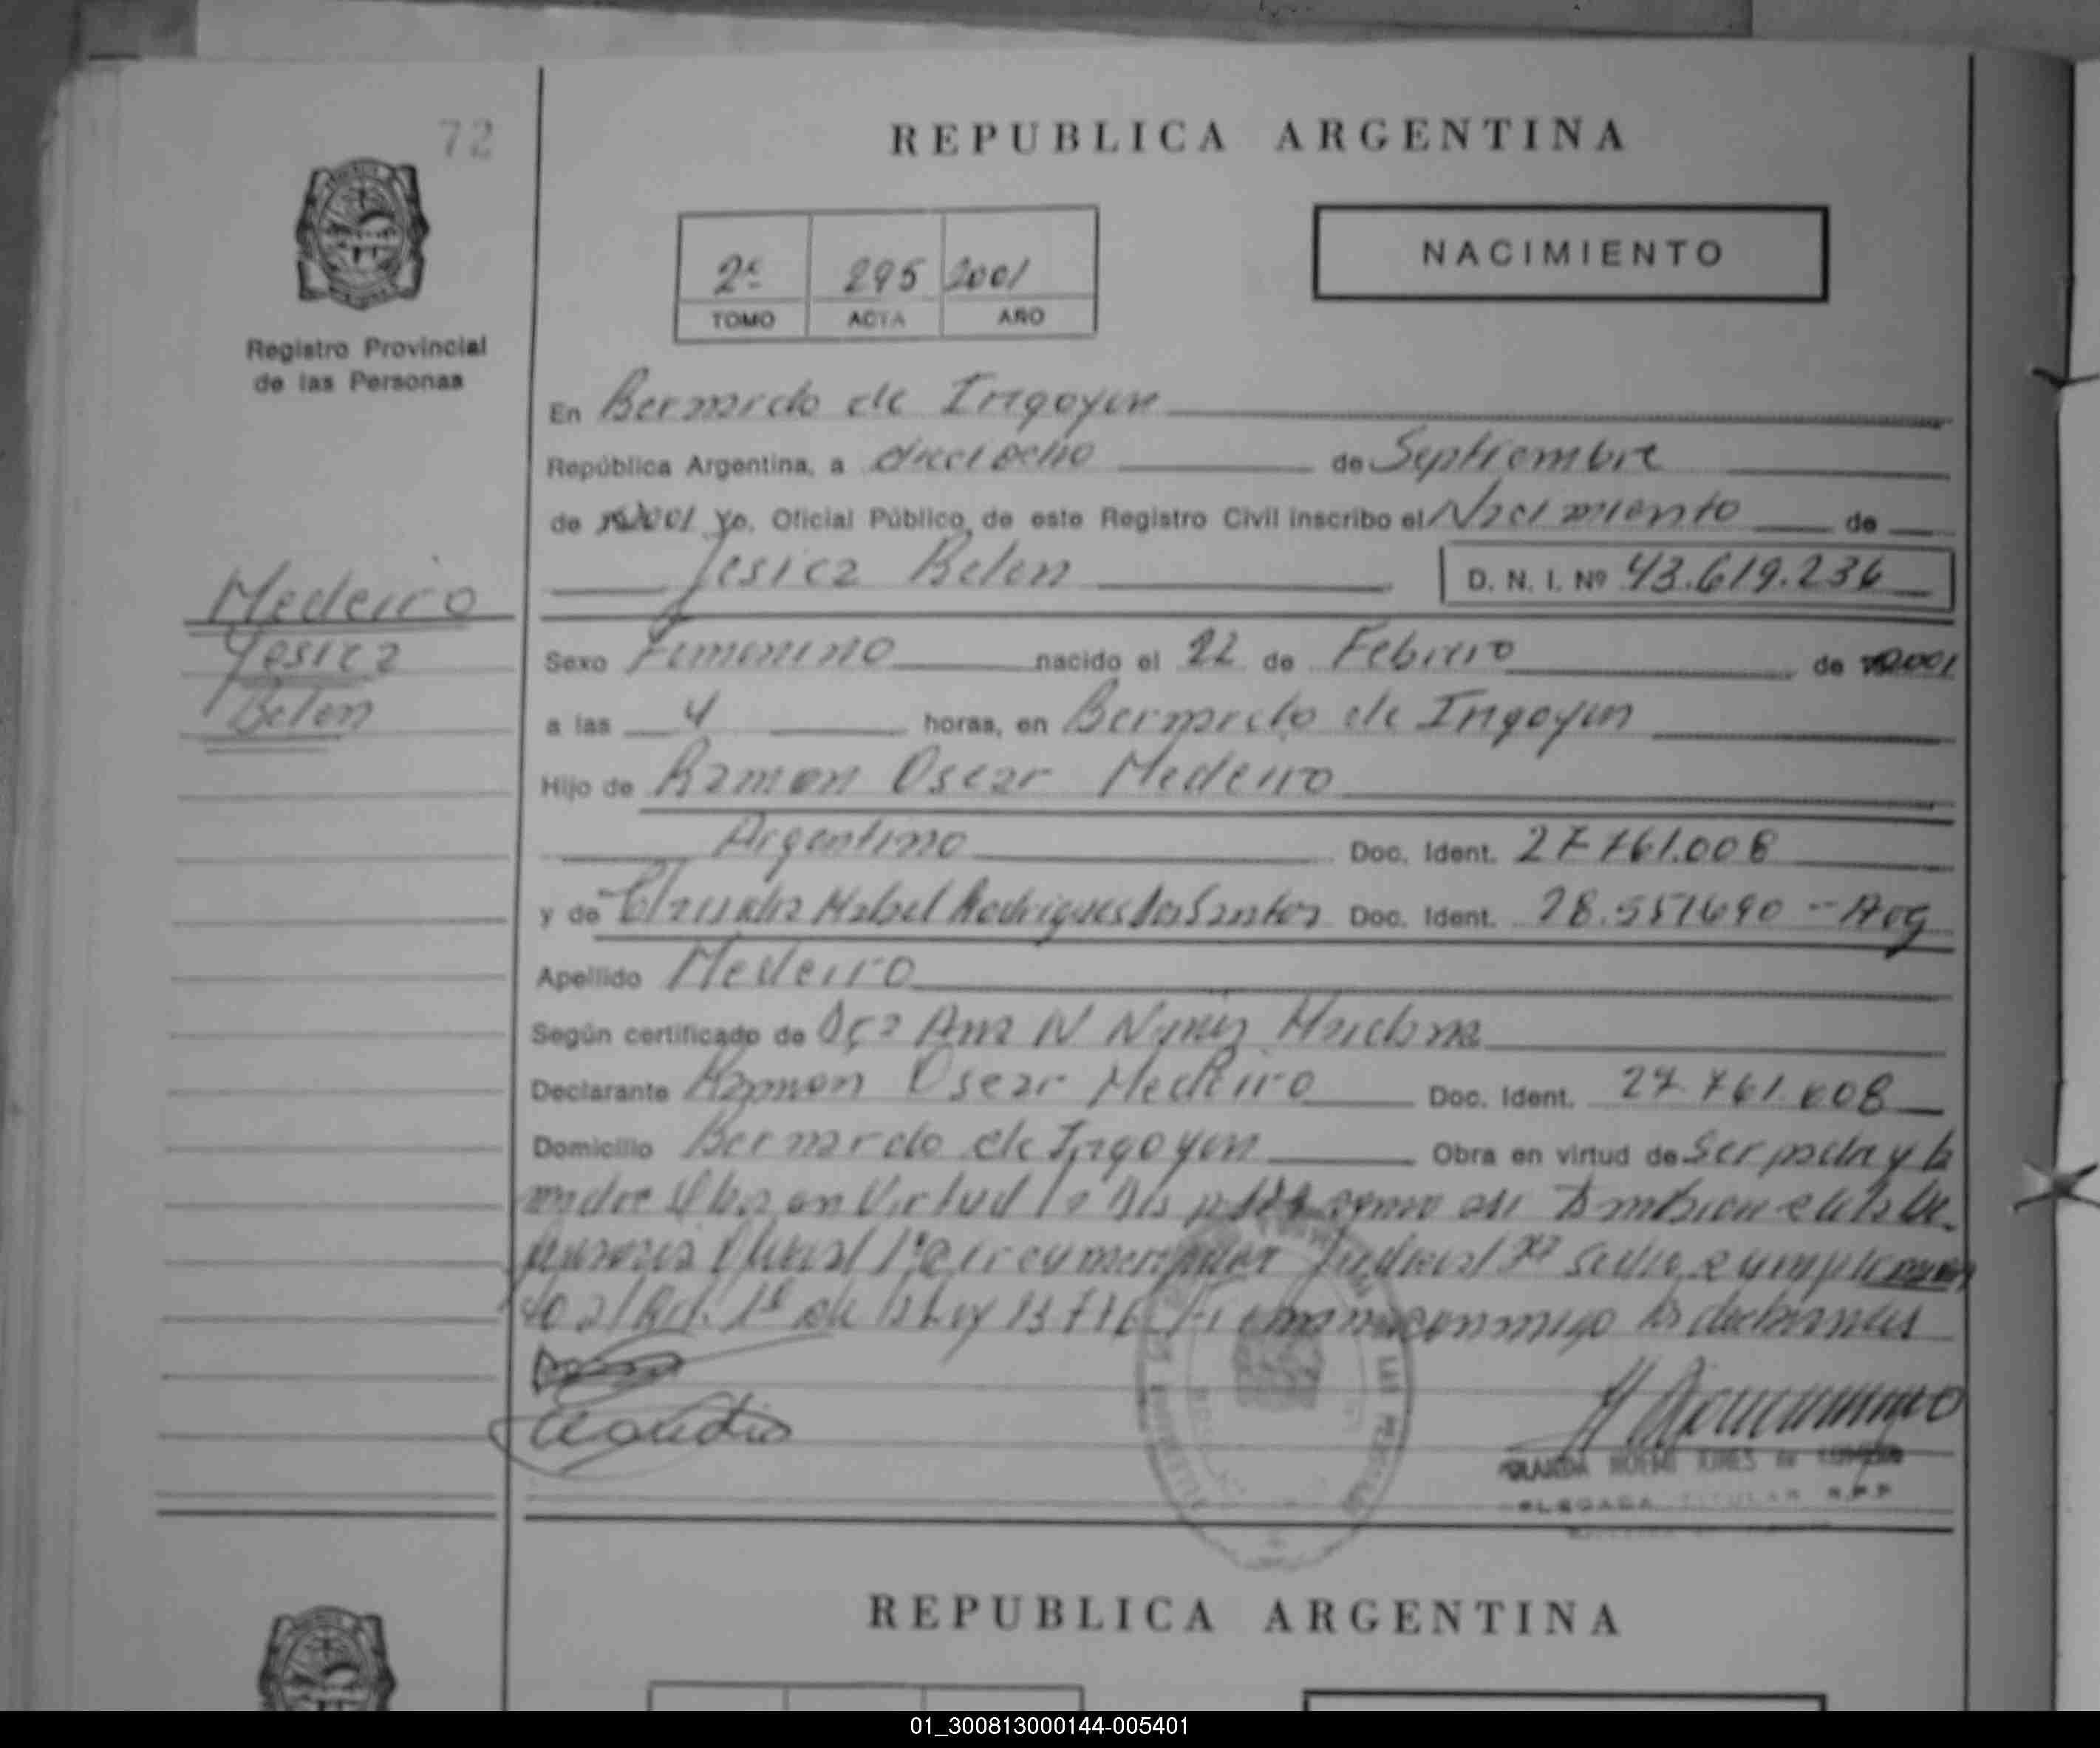 72
REPUBLICA ARGENTINA
NACIMIENTO
2º 295 2001
TOMO ACTA AÑO
Registro Provincial
de las Personas
En Bernardo de Irigoyen
República Argentina, a dieciocho de Septiembre
de 2001 Yo, Oficial Público, de este Registro Civil inscribo el Nacimiento de
Yesica Belen D. N. I. Nº 43.619.236
Medeiro
Yesica
Belen
Sexo Femenino nacido el 22 de Febrero de 2001
a las 4 horas, en Bernardo de Irigoyen
Hijo de Ramon Oscar Medeiro
Argentino Doc. Ident. 27.761.008
y de Claudia Mabel Rodrigues Dos Santos Doc. Ident. 28.551690 - Arg
Apellido Medeiro
Según certificado de Dra Ana N
Declarante Ramon Oscar Medeiro Doc. Ident. 27.761.008
Domicilio Bernardo de Irigoyen Obra en virtud de Ser padre y la
madre Obra en Virtud lo
Judicial
al Art. 1º de la Ley conmigo los declarantes
Claudia
NOEMI
DELEGADA TITULAR R.P.P
REPUBLICA ARGENTINA
01_300813000144-005401